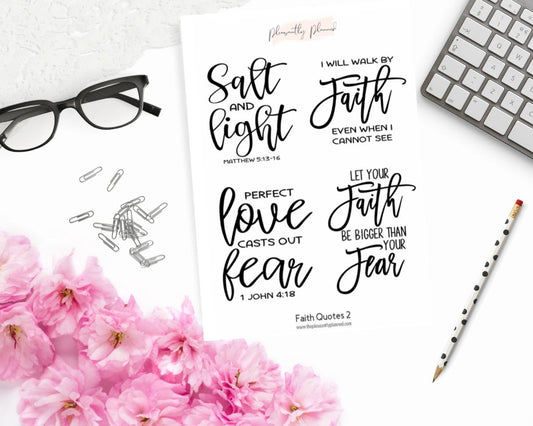 Pleasantly Planned
Salt
AND
light
MATTHEW 5:13-16
I WILL WALK BY
Faith
EVEN WHEN I
CANNOT SEE
PERFECT
love
CASTS OUT
fear
1 JOHN 4:18
LET YOUR
Faith
BE BIGGER THAN
YOUR
Fear
Faith Quotes 2
www.thepleasantlyplanned.com